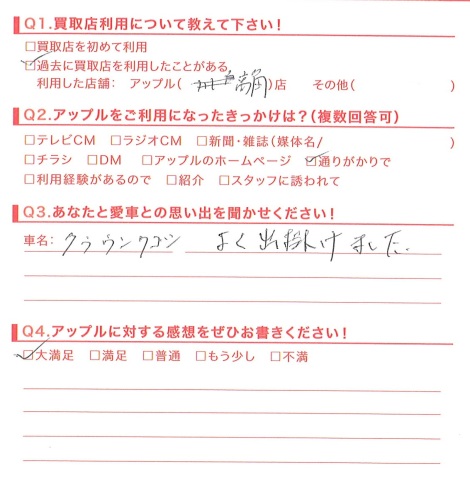 Q1.買取店利用について教えて下さい!
□買取店を初めて利用
☑過去に買取店を利用したことがある
利用した店舗： アップル( 高角 )店 その他( )
Q2.アップルをご利用になったきっかけは?(複数回答可)
□テレビCM □ラジオCM □新聞・雑誌(媒体名/ )
□チラシ □DM □アップルのホームページ ☑通りがかりで
□利用経験があるので □紹介 □スタッフに誘われて
Q3.あなたと愛車との思い出を聞かせください!
車名： クラウンワゴン よく出掛けました.
Q4.アップルに対する感想をぜひお書きください!
☑大満足 □満足 □普通 □もう少し □不満